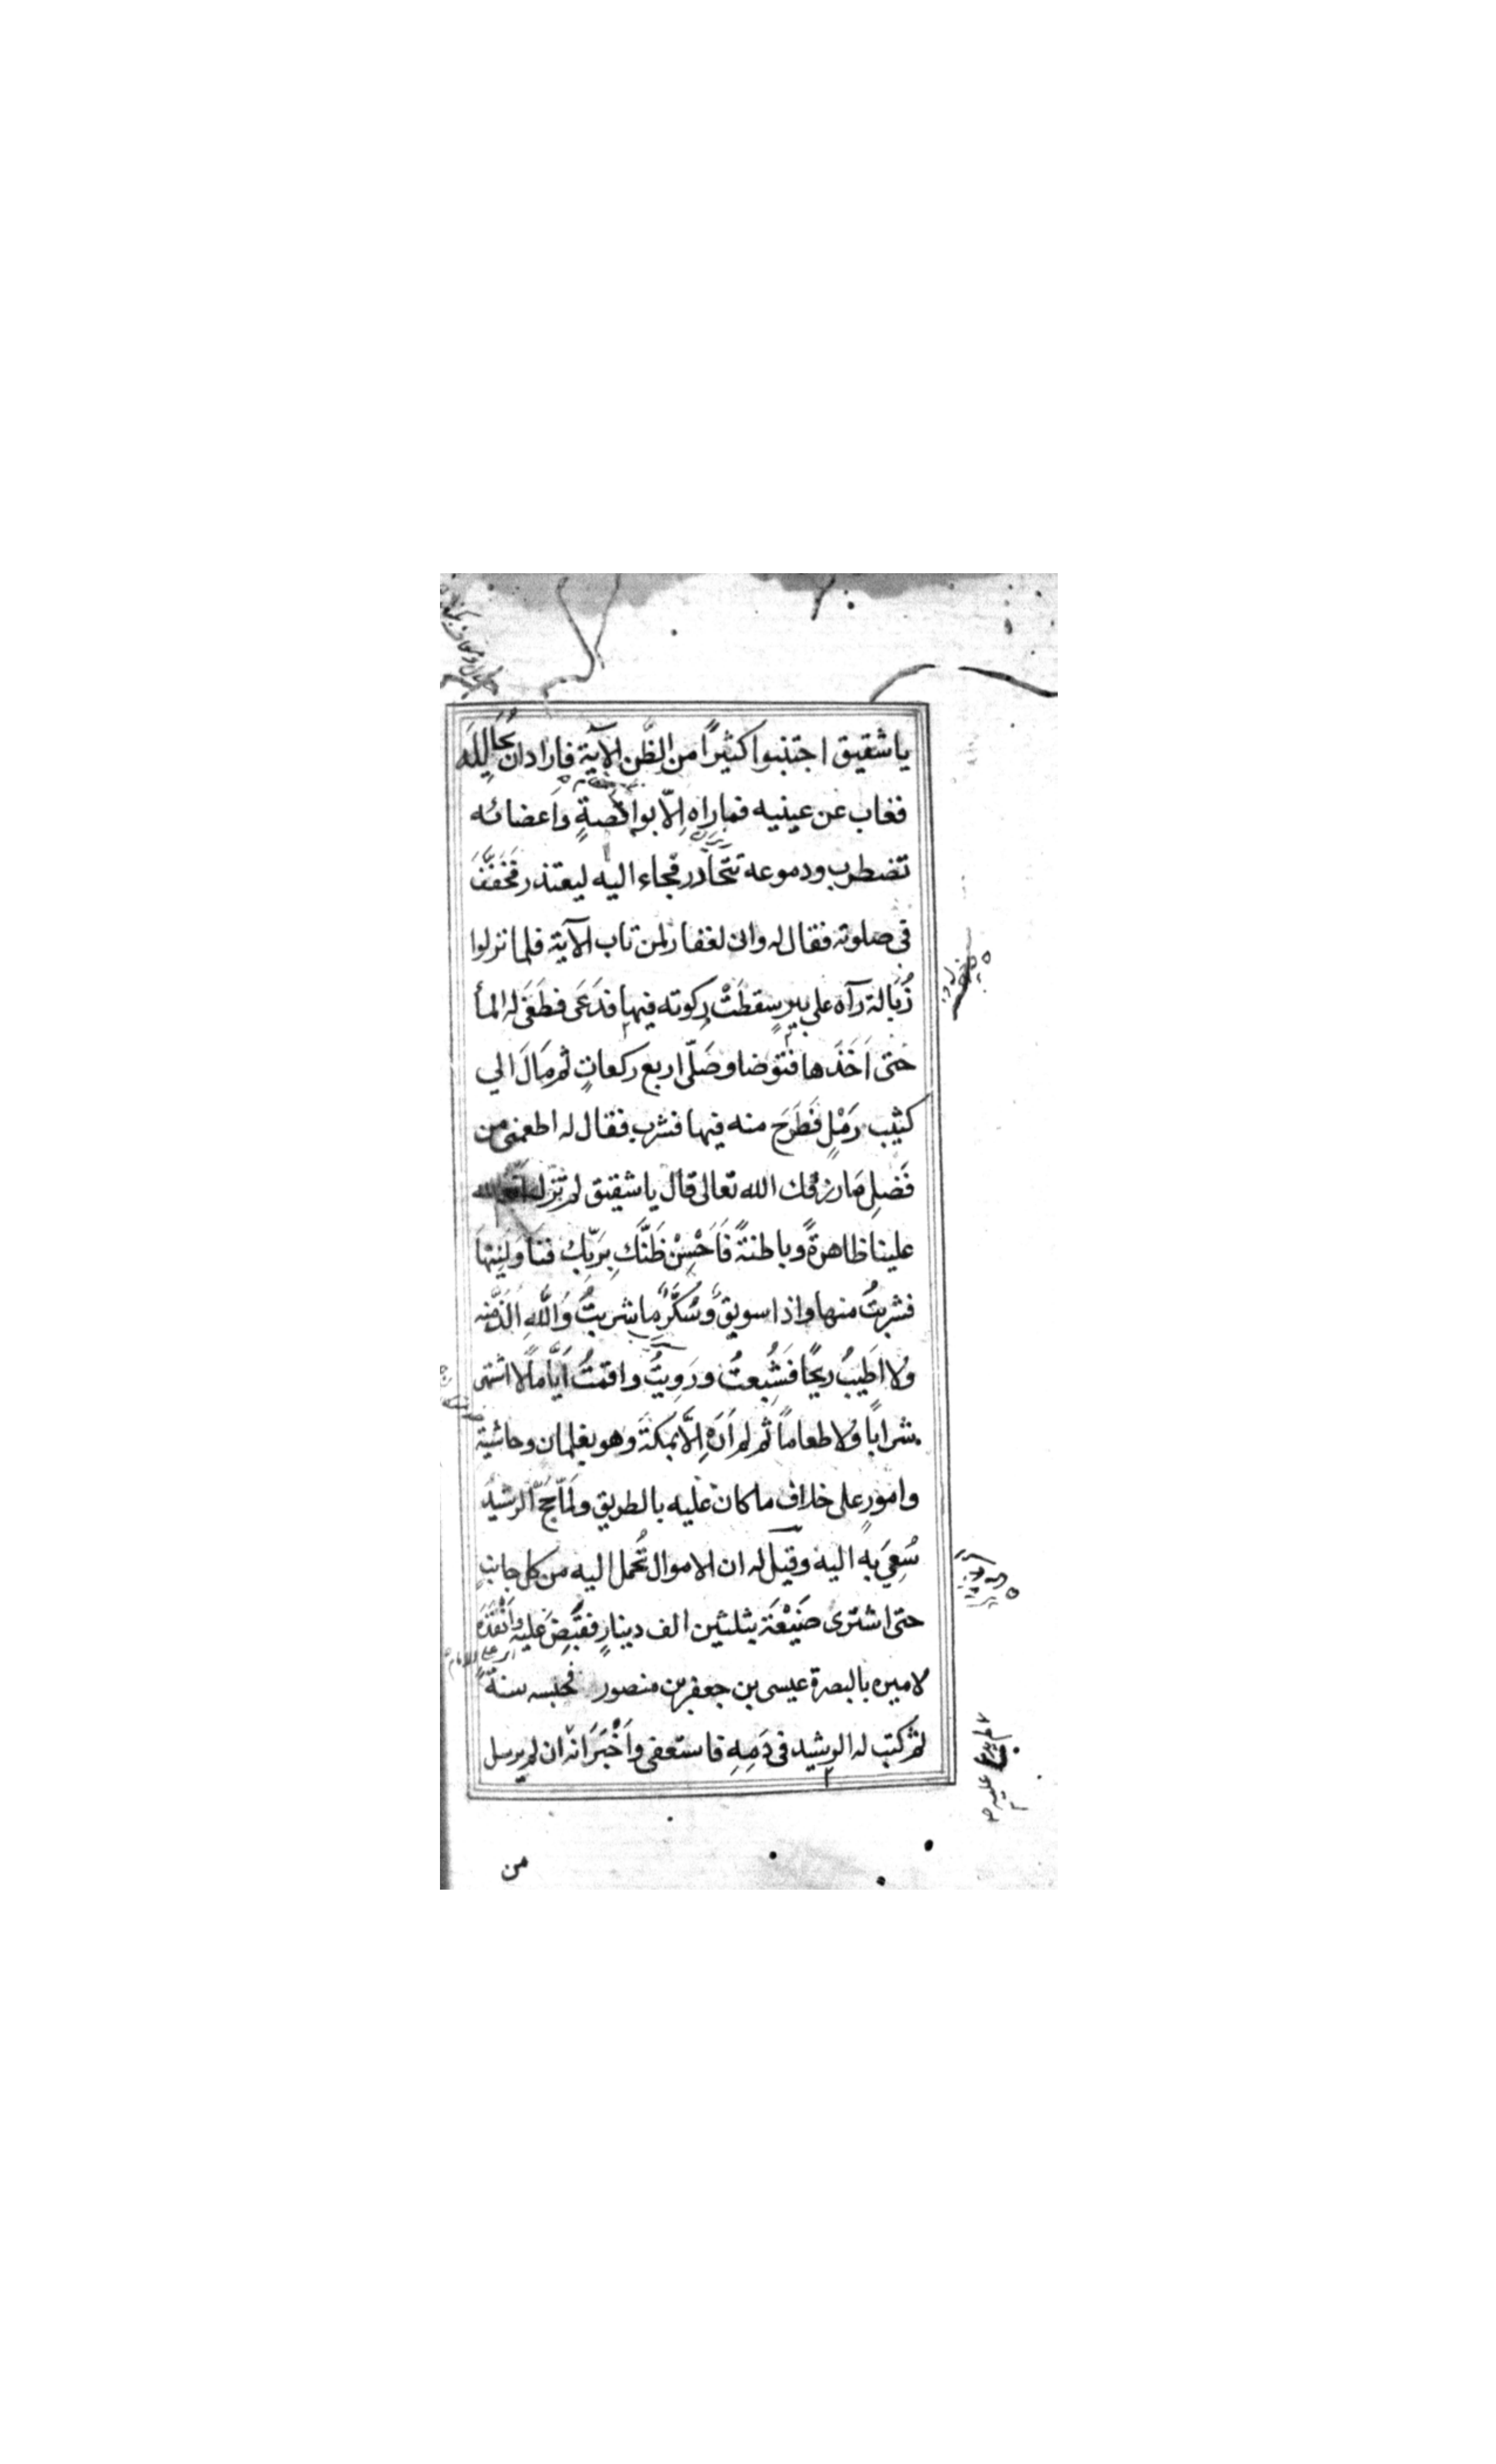 يا شقيق اجتنبوا كثيرًا من الظّن الآية فاراد ان
فغاب عن عينيه فما راه اِلّا بواقصةٍ واَعضائه
تضطرب ودموعه تتحادر فجاء اليه ليعتذر فَخَفَّفَ
فى صلوته فقال له وان لغفار لمن تاب الآية فلما نزلوا
زُبَالة رآه على بيرٍ سقطَتْ رِكوته فيها فدَعَى فطَغَى له المأ
حتى اَخَذَها فتوضا وصَلّى اربع ركعاتٍ ثم مَالَ الي
كثيب رَمْلٍ فَطَرَحَ منه فيها فشرب فقال له اطعمنى من
فَضلِ مَا رزقك الله تعالى قال يا شقيق لم تزل
علينا ظاهرةً وباطنةً فَاَحْسِنْ ظَنَّكَ بِرَبِّكَ فنَاوَلَنِيهَا
فشربتُ منها واذا سويقٌ وَسُكَّرٌ ما شربتُ وَاللّٰهِ اَلَذَّ منه
ولا اَطيَبُ ريحًا فَشَبِعتُ ورَوِيتُ واقمتُ اَيَّامًا لا اشتهى
شرابًا ولا طعامًا ثم لم اَرَهُ اِلَّا بمكةَ وهو بغلمان وحاشية
وامورٍ على خلاف ما كان عليه بالطريق ولَمَّا حَجَّ الرشيدُ
سُعِيَ به اليه وقيل له ان الاموال تُحمل اليه من كل جانبٍ
حتى اشترى ضَيْعَة بثلثين الف دينارٍ فقَبَضَ عليه وَاَنْفَذَهُ
لاميره بالبصرة عيسى بن جعفر بن منصور فحبسه سنةً
ثم كتب له الرشيد فى دَمِهِ فاستعفى واَخْبَرَ انه ان لم يرسل
من